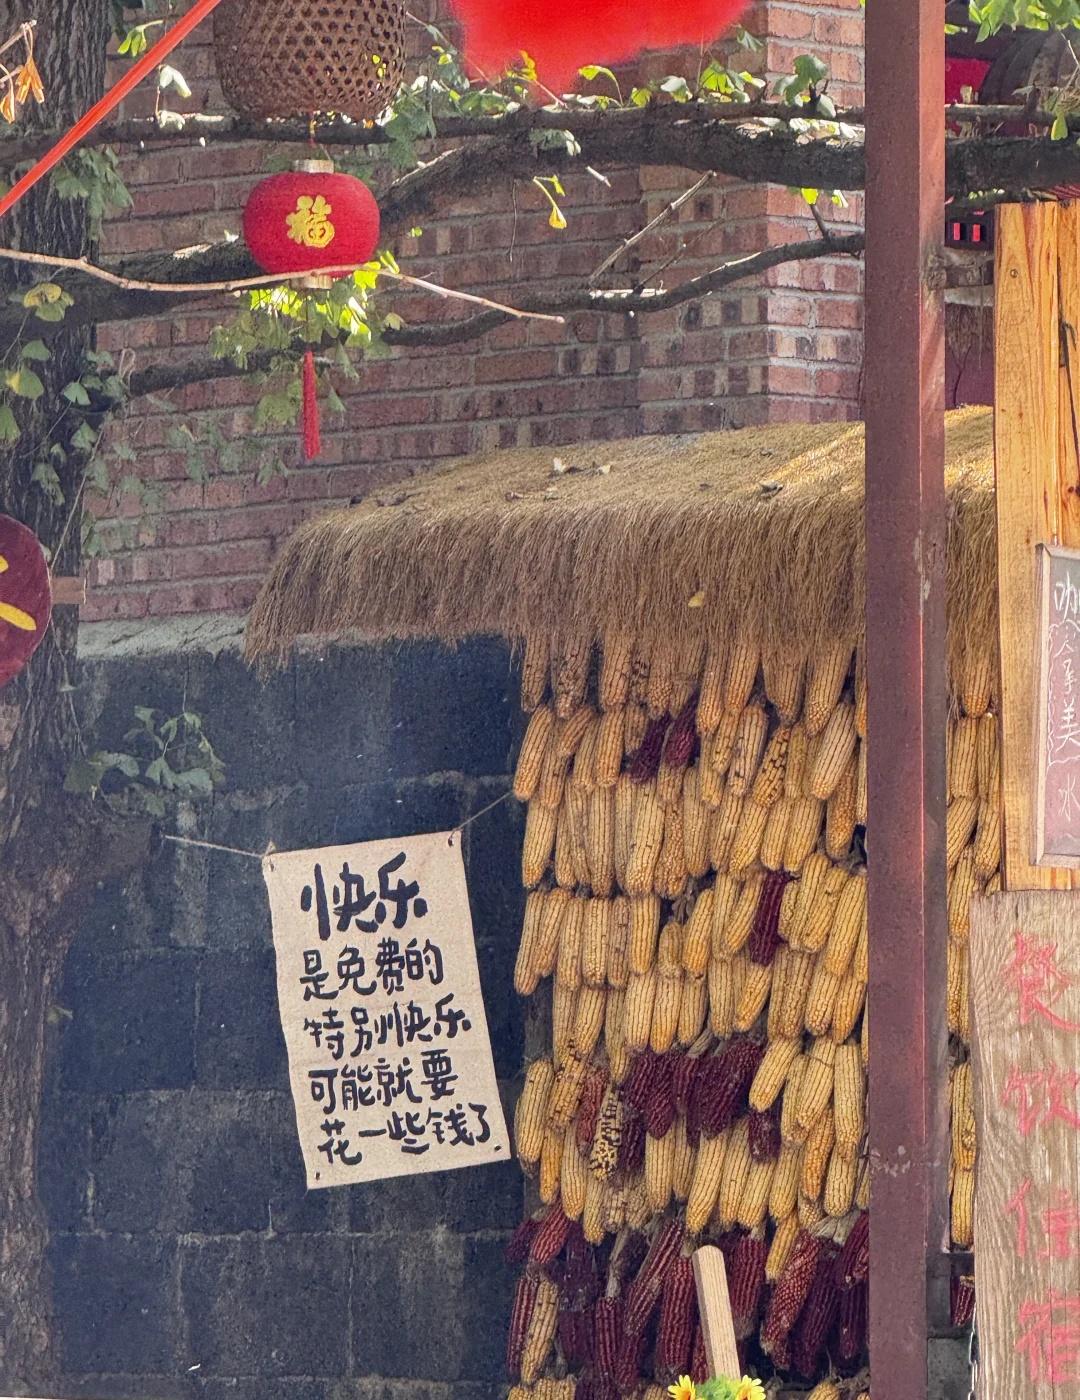 福
快乐
是免费的
特别快乐
可能就要
花一些钱了
餐饮住宿